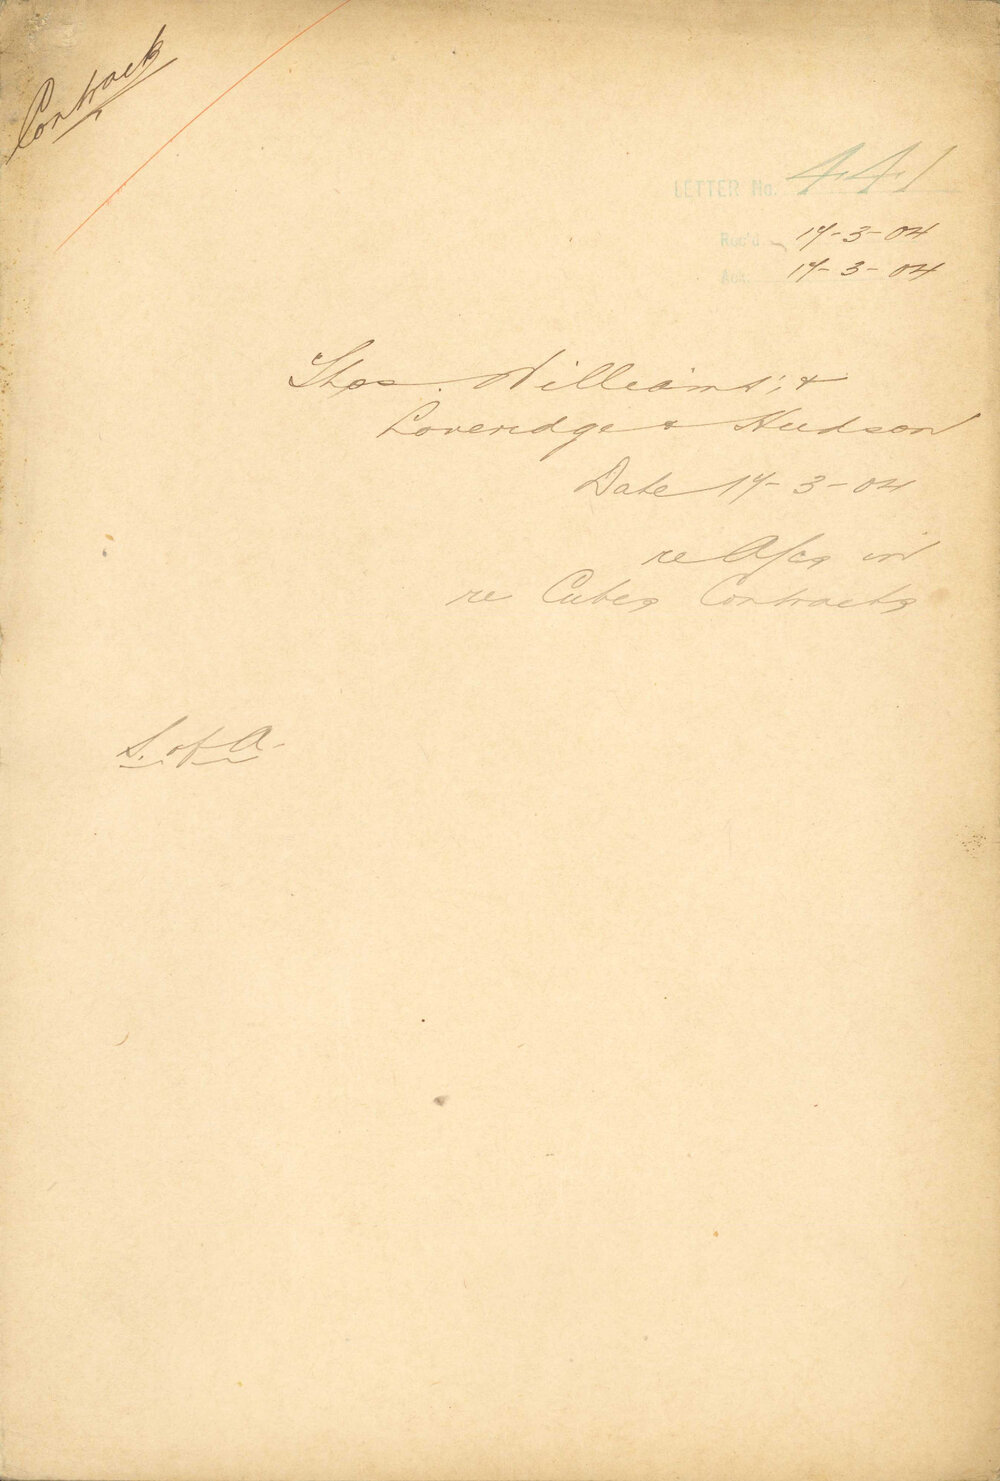 Contract
LETTER No. 441
Rec'd 17-3-04
Ack 17-3-04
Thos. Williams, &
Loveridge & Hudson
Date 17-3-04
re A/cs in
re Cubes Contracts
S. of A.